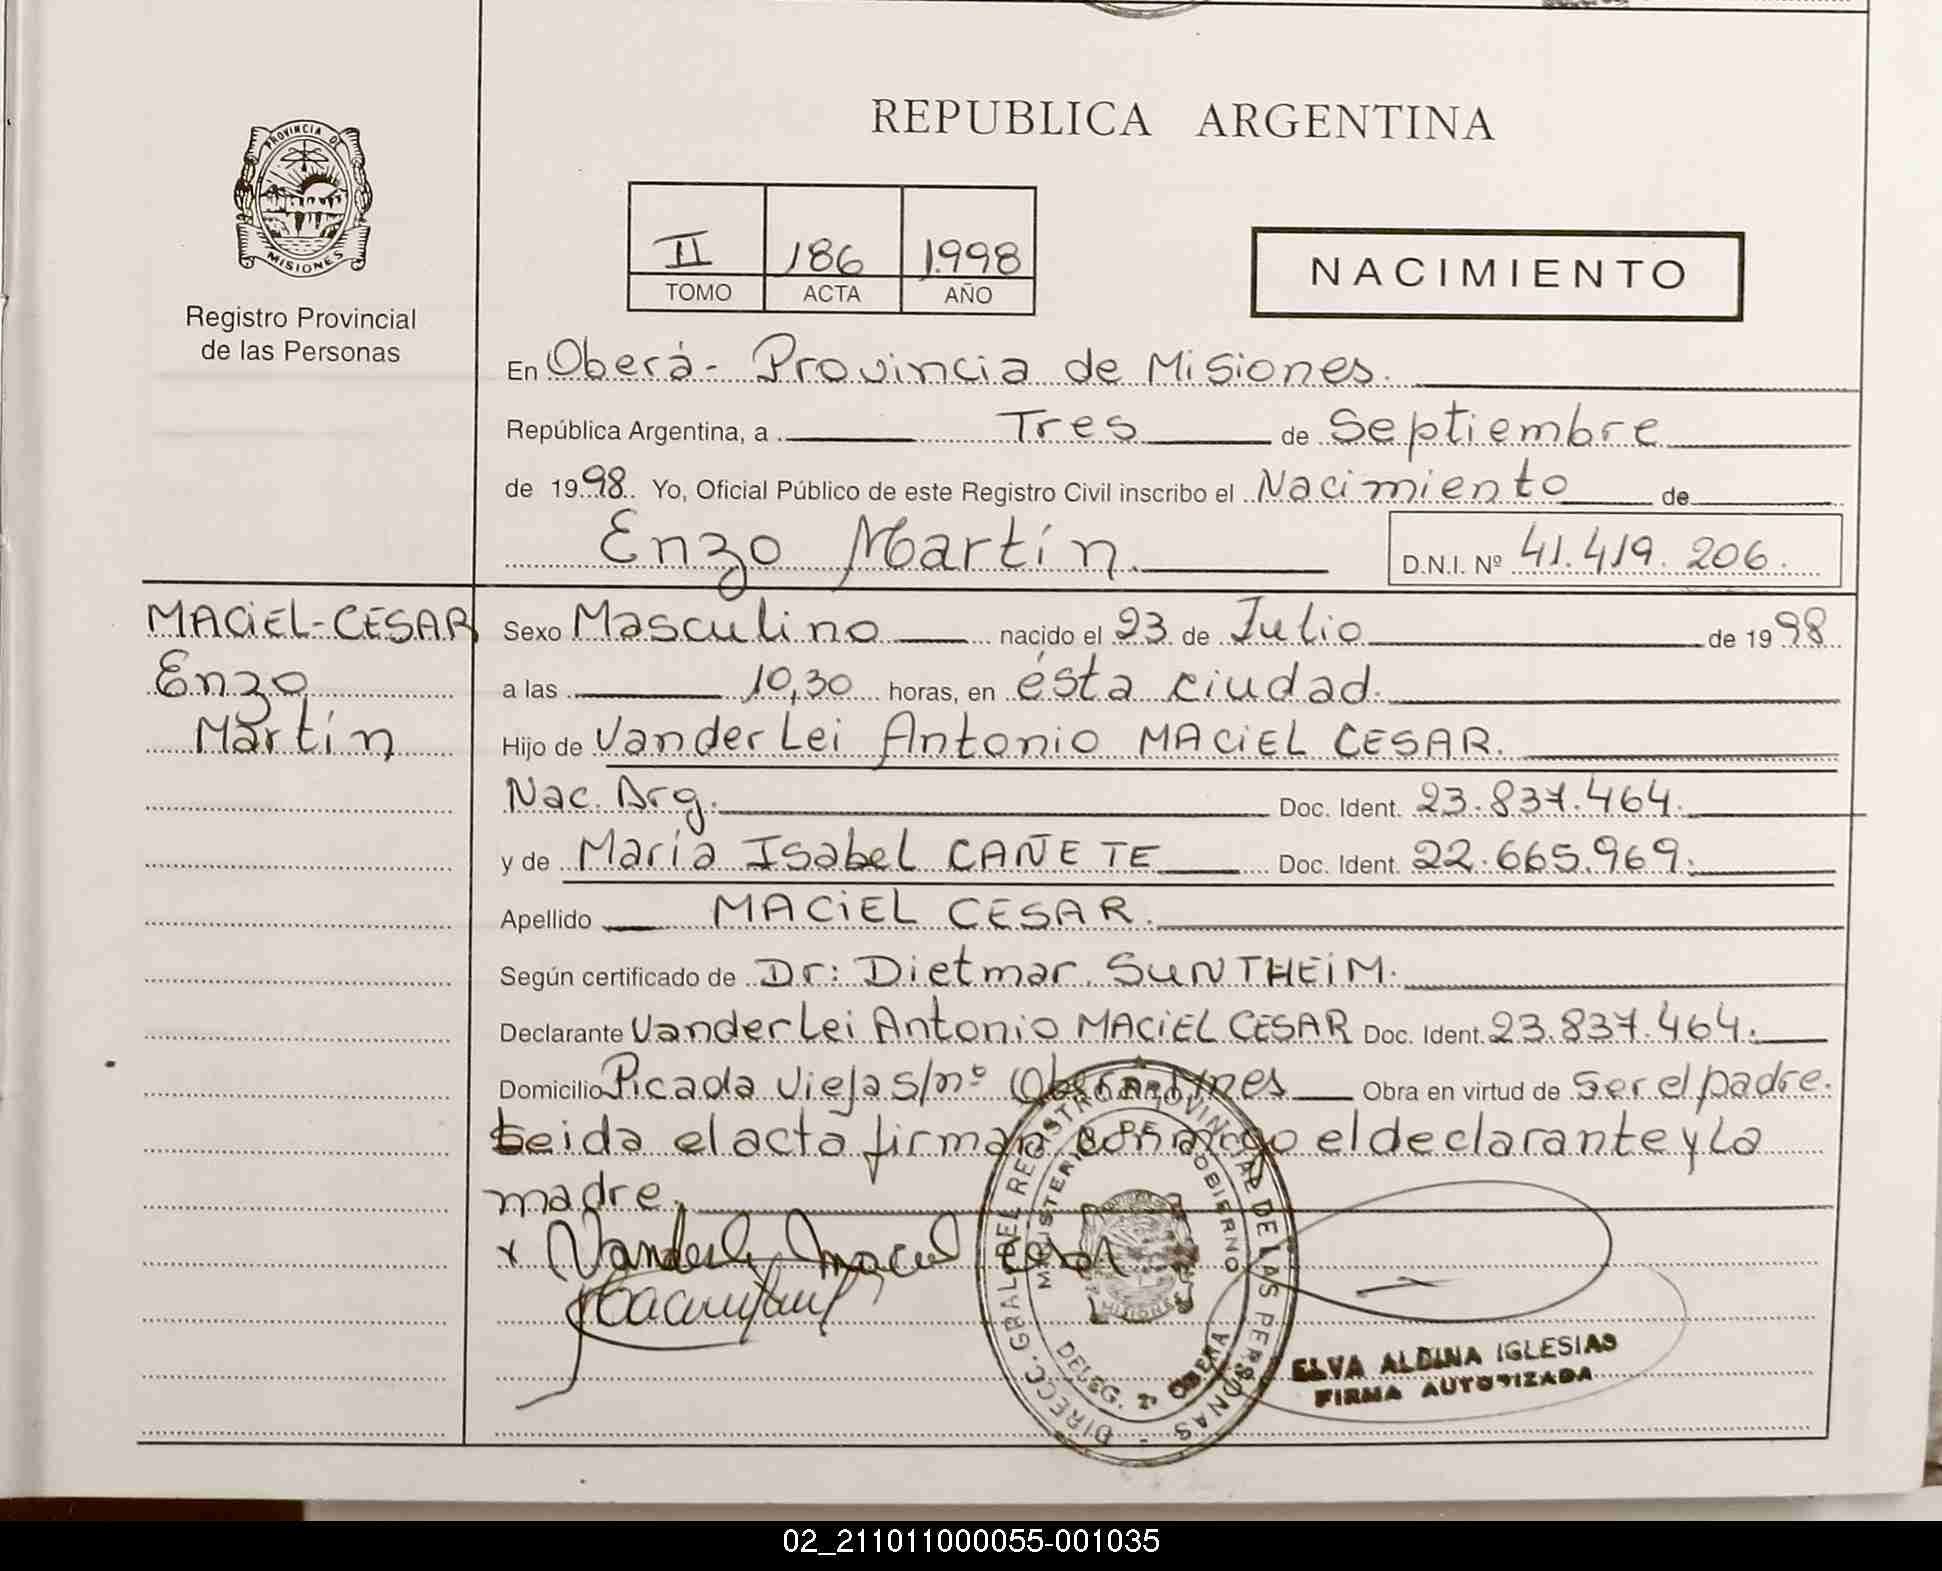 REPUBLICA ARGENTINA
PROVINCIA DE
MISIONES
Registro Provincial
de las Personas
II 186 1.998
TOMO ACTA AÑO
NACIMIENTO
En Oberá- Provincia de Misiones.
República Argentina, a Tres de Septiembre
de 1998. Yo, Oficial Público de este Registro Civil inscribo el Nacimiento de
Enzo Martín. D.N.I. Nº 41.419.206.
MACIEL-CESAR
Enzo
Martín
Sexo Masculino nacido el 23 de Julio de 1998
a las 10,30 horas, en ésta ciudad.
Hijo de Vanderlei Antonio MACIEL CESAR.
Nac. Arg. Doc. Ident. 23.837.464.
y de María Isabel CAÑETE Doc. Ident. 22.665.969.
Apellido MACIEL CESAR.
Según certificado de Dr: Dietmar SUNTHEIM.
Declarante Vanderlei Antonio MACIEL CESAR Doc. Ident. 23.837.464.
Domicilio Picada Vieja s/nº Oberá Mnes Obra en virtud de Ser el padre.
Leida el acta firman conmigo el declarante y la
madre.
x Vanderlei Maciel Cesar
DIRECC. GRAL. DEL REGISTRO PROVINCIAL DE LAS PERSONAS -
MINISTERIO DE GOBIERNO
MISIONES
DELEG. OBERA
ELVA ALBINA IGLESIAS
FIRMA AUTORIZADA
02_211011000055-001035